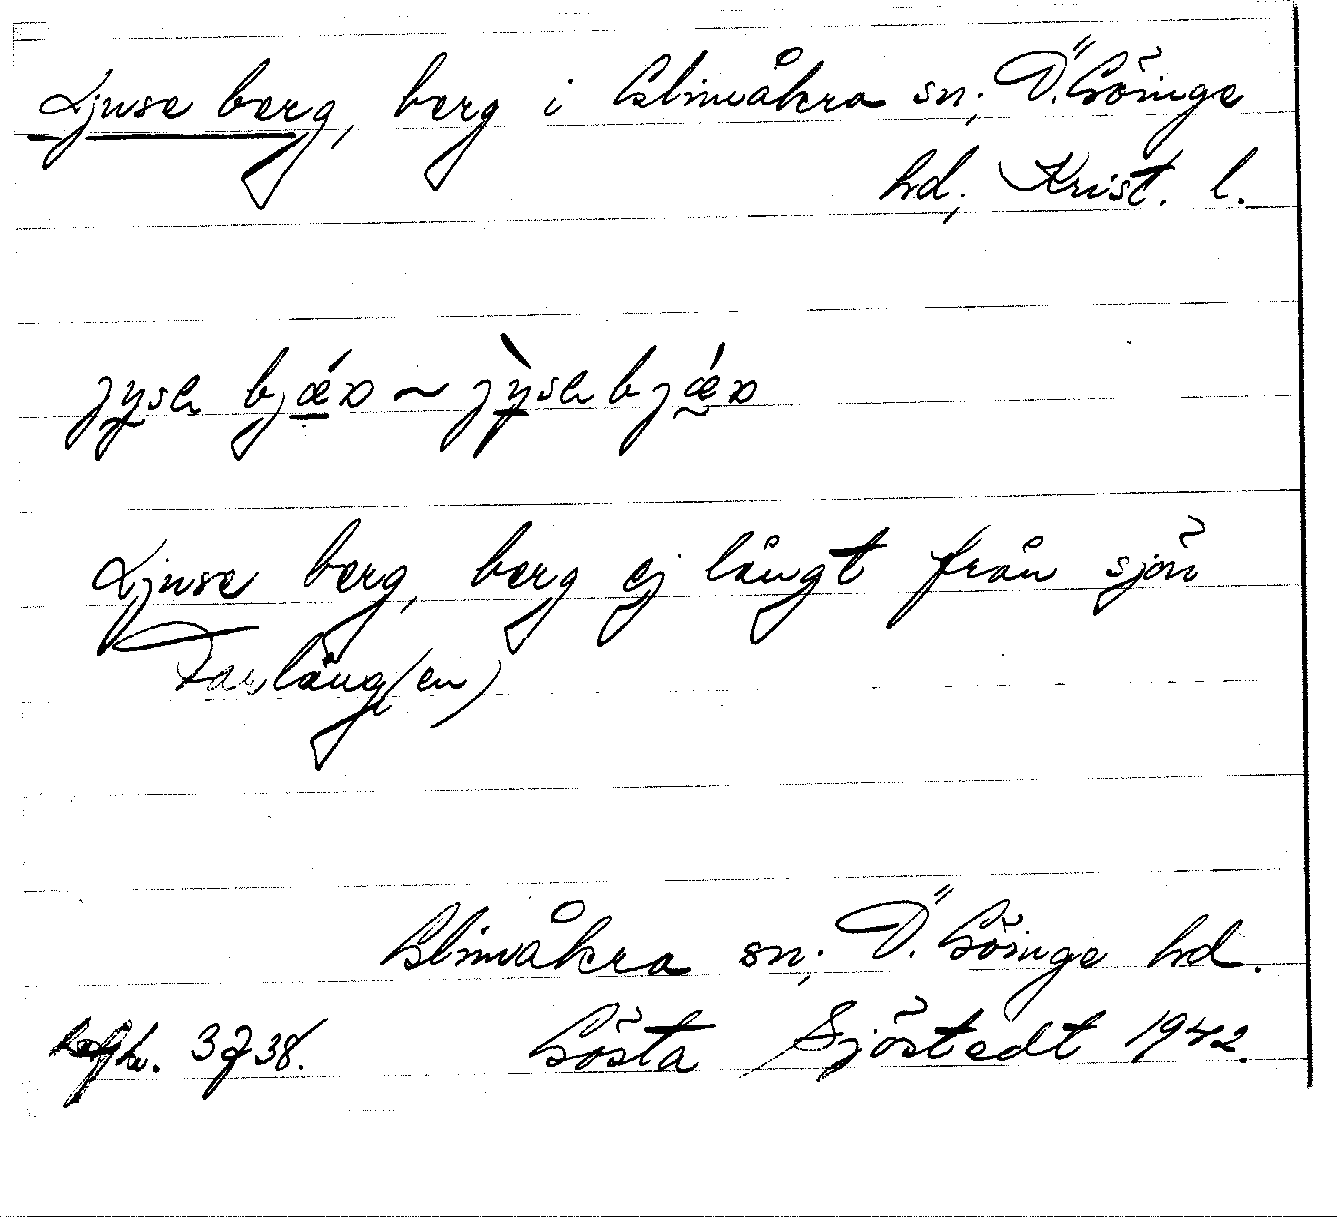 Ljuse berg, berg i Glimåkra sn; Ö. Göinge
hd; Krist. l.
jysa bjǽr ~ jỳsa bjǽr
Ljuse berg, berg ej långt från sjön
Farlång(en)
Glimåkra sn; Ö. Göinge hd.
3738. Gösta Sjöstedt 1942.